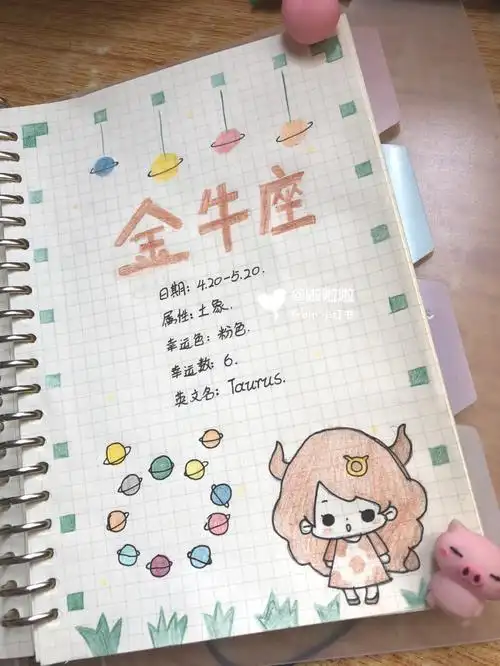 金牛座
日期：4.20-5.20.
属性：土象.
幸运色：粉色.
幸运数：6.
英文名：Taurus.